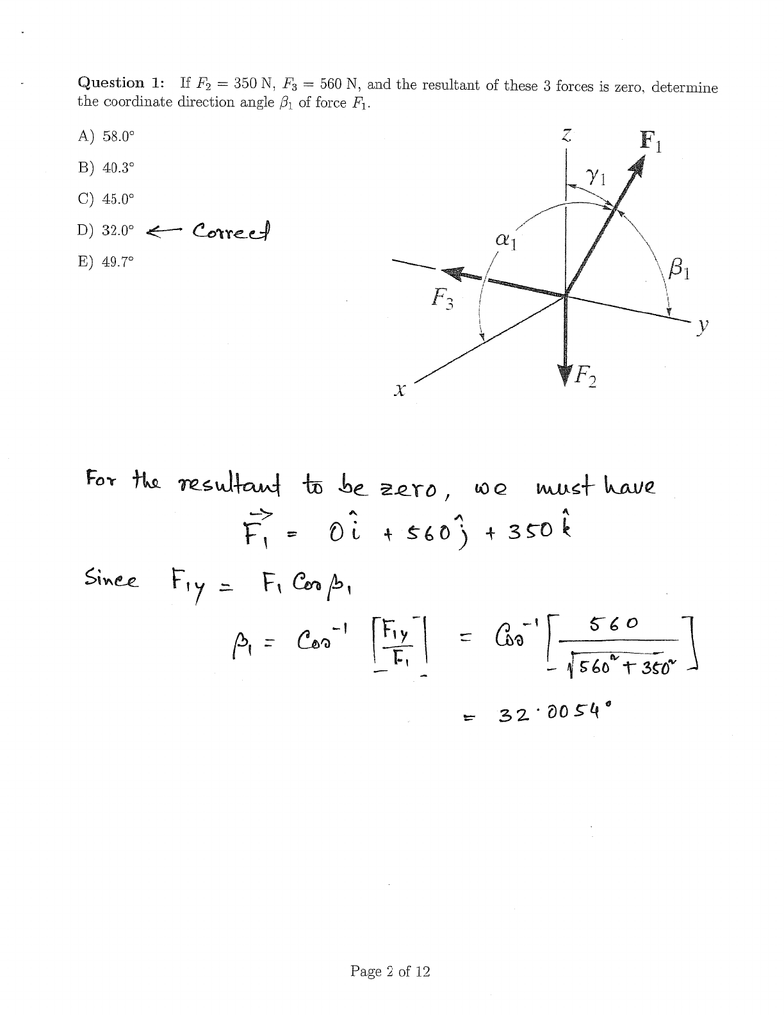 Question 1: If F₂ = 350 N, F₃ = 560 N, and the resultant of these 3 forces is zero, determine
the coordinate direction angle β₁ of force F₁.
A) 58.0°
B) 40.3°
C) 45.0°
D) 32.0° ← Correct
E) 49.7°
z
F₁
γ₁
α₁
β₁
F₃
y
F₂
x
For the resultant to be zero, we must have
F⃗₁ = 0î + 560ĵ + 350k̂
Since F₁y = F₁ Cos β₁
β₁ = Cos⁻¹ [F₁y/F₁] = Cos⁻¹ [560/√(560² + 350²)]
= 32.0054°
Page 2 of 12